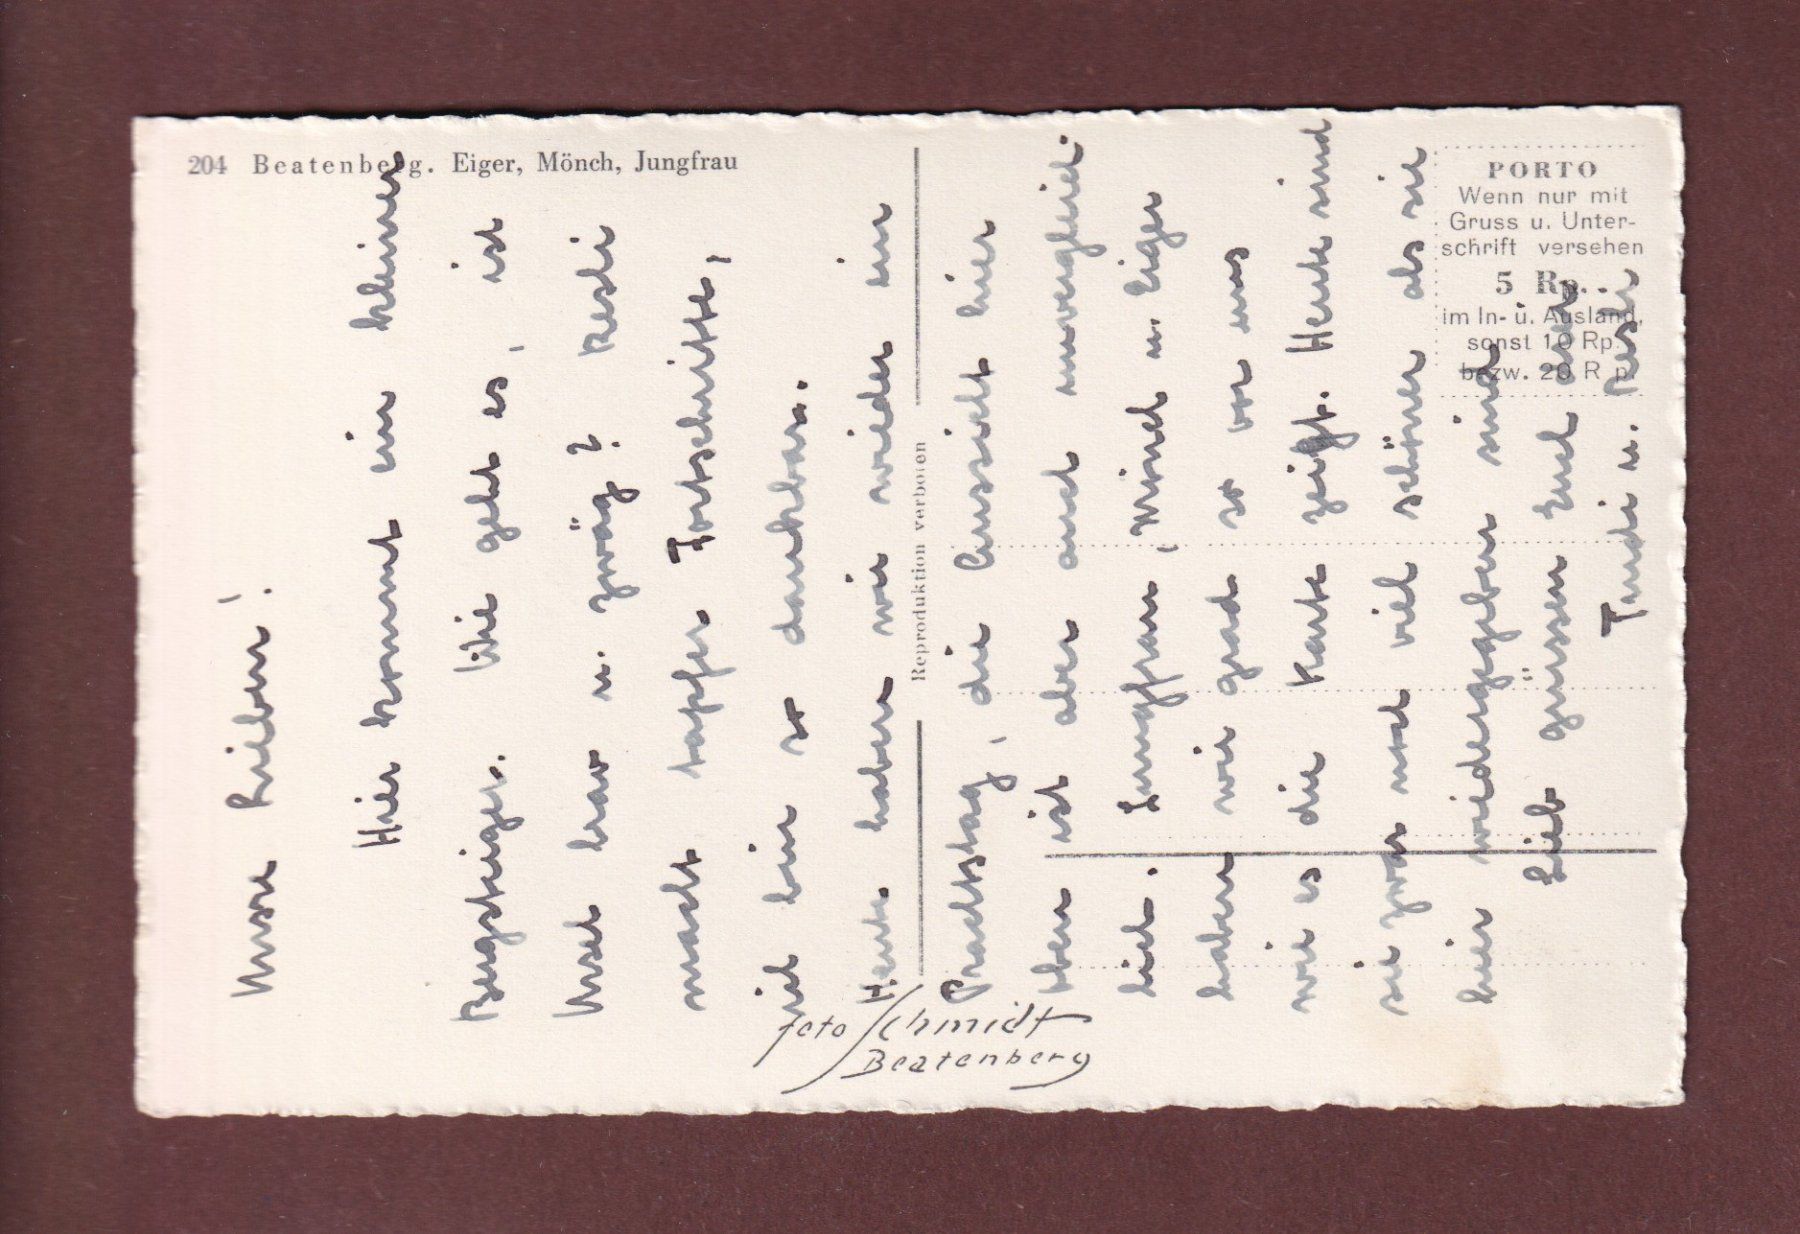 204 Beatenberg. Eiger, Mönch, Jungfrau
PORTO
Wenn nur mit
Gruss u. Unter-
schrift versehen
5 Rp.
im In- u. Ausland,
sonst 10 Rp.
bezw. 20 Rp.
Reproduktion verboten
Foto Schmidt
Beatenberg
Unsre Lieben!
Hier kommt ein kleiner
Bergsteiger. Wie geht es, ist
Ursel brav u. zwäg? Resli
macht tapfer Fortschritte,
ich bin so dankbar.
Heute haben wir wieder ein
Prachtstag, die Aussicht hier
oben ist aber auch unvergleich-
lich. Jungfrau, Mönch u. Eiger
haben wir grad so vor uns
wie es die Karte zeigt. Heute sind
sie zwar noch viel schöner als sie
hier wiedergegeben sind
Lieb grüssen Euch
Trudi u. Resli